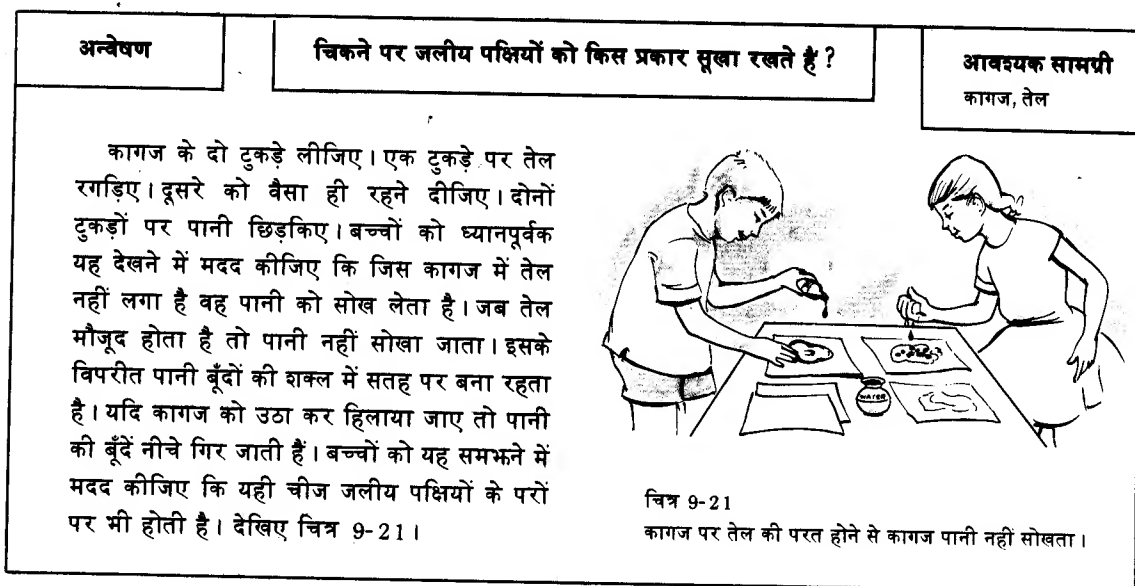 अन्वेषण
चिकने पर जलीय पक्षियों को किस प्रकार सूखा रखते हैं ?
आवश्यक सामग्री
कागज, तेल
कागज के दो टुकड़े लीजिए। एक टुकड़े पर तेल
रगड़िए। दूसरे को वैसा ही रहने दीजिए। दोनों
टुकड़ों पर पानी छिड़किए। बच्चों को ध्यानपूर्वक
यह देखने में मदद कीजिए कि जिस कागज में तेल
नहीं लगा है वह पानी को सोख लेता है। जब तेल
मौजूद होता है तो पानी नहीं सोखा जाता। इसके
विपरीत पानी बूँदों की शक्ल में सतह पर बना रहता
है। यदि कागज को उठा कर हिलाया जाए तो पानी
की बूँदें नीचे गिर जाती हैं। बच्चों को यह समझने में
मदद कीजिए कि यही चीज जलीय पक्षियों के परों
पर भी होती है। देखिए चित्र 9-21।
WATER
चित्र 9-21
कागज पर तेल की परत होने से कागज पानी नहीं सोखता।